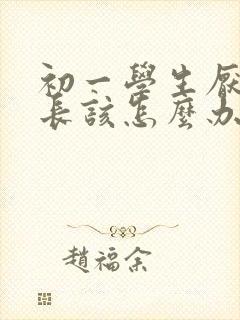 初一學生厭
長該怎麼办
趙福余